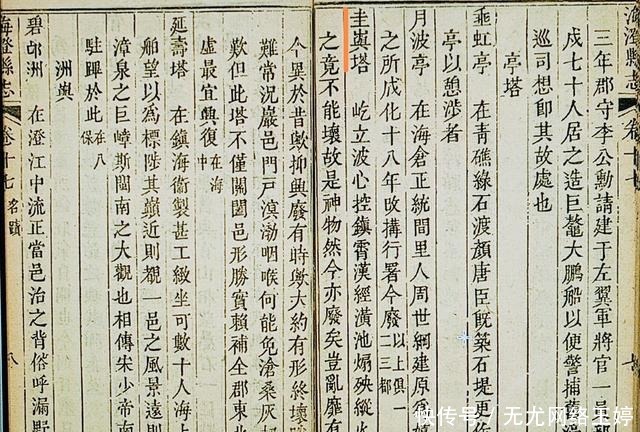 海澄縣志
卷十七
三年郡守李公勳請建于左翼軍將官一員
戍七十人居之造巨鼇大鵬船以便警捕舊
巡司想卽其故處也
亭塔
垂虹亭 在青礁綠石渡顏唐臣旣築石堤更作
亭以憩渉者
月波亭 在海倉正統間里人周世綱建原爲
之所成化十八年改搆行署今廢以上俱一二三都
圭輿塔 屹立波心控鎮霄漢經潢池煽殃縱火
之竟不能壞故是神物然今亦廢矣豈亂靡有
今異於昔歟抑興廢有時歟大約有形終壞
難常況巖邑門戸溟渤咽喉何能免滄桑灰刼
歎但此塔不僅關闔邑形勝實賴補全郡東北
虛最宜興復在海中
延壽塔 在鎮海衞製甚工緻坐可數十人海上
舶望以爲標陟其巔近則覩一邑之風景遠則
漳泉之巨嶂斯閩南之大觀也相傳宋少帝南
駐蹕於此在八保
洲輿
碧𨙸洲 在澄江中流正當邑治之背俗呼漏野
海澄縣志
卷十七 名蹟
八
快传号／无尤网络王婷